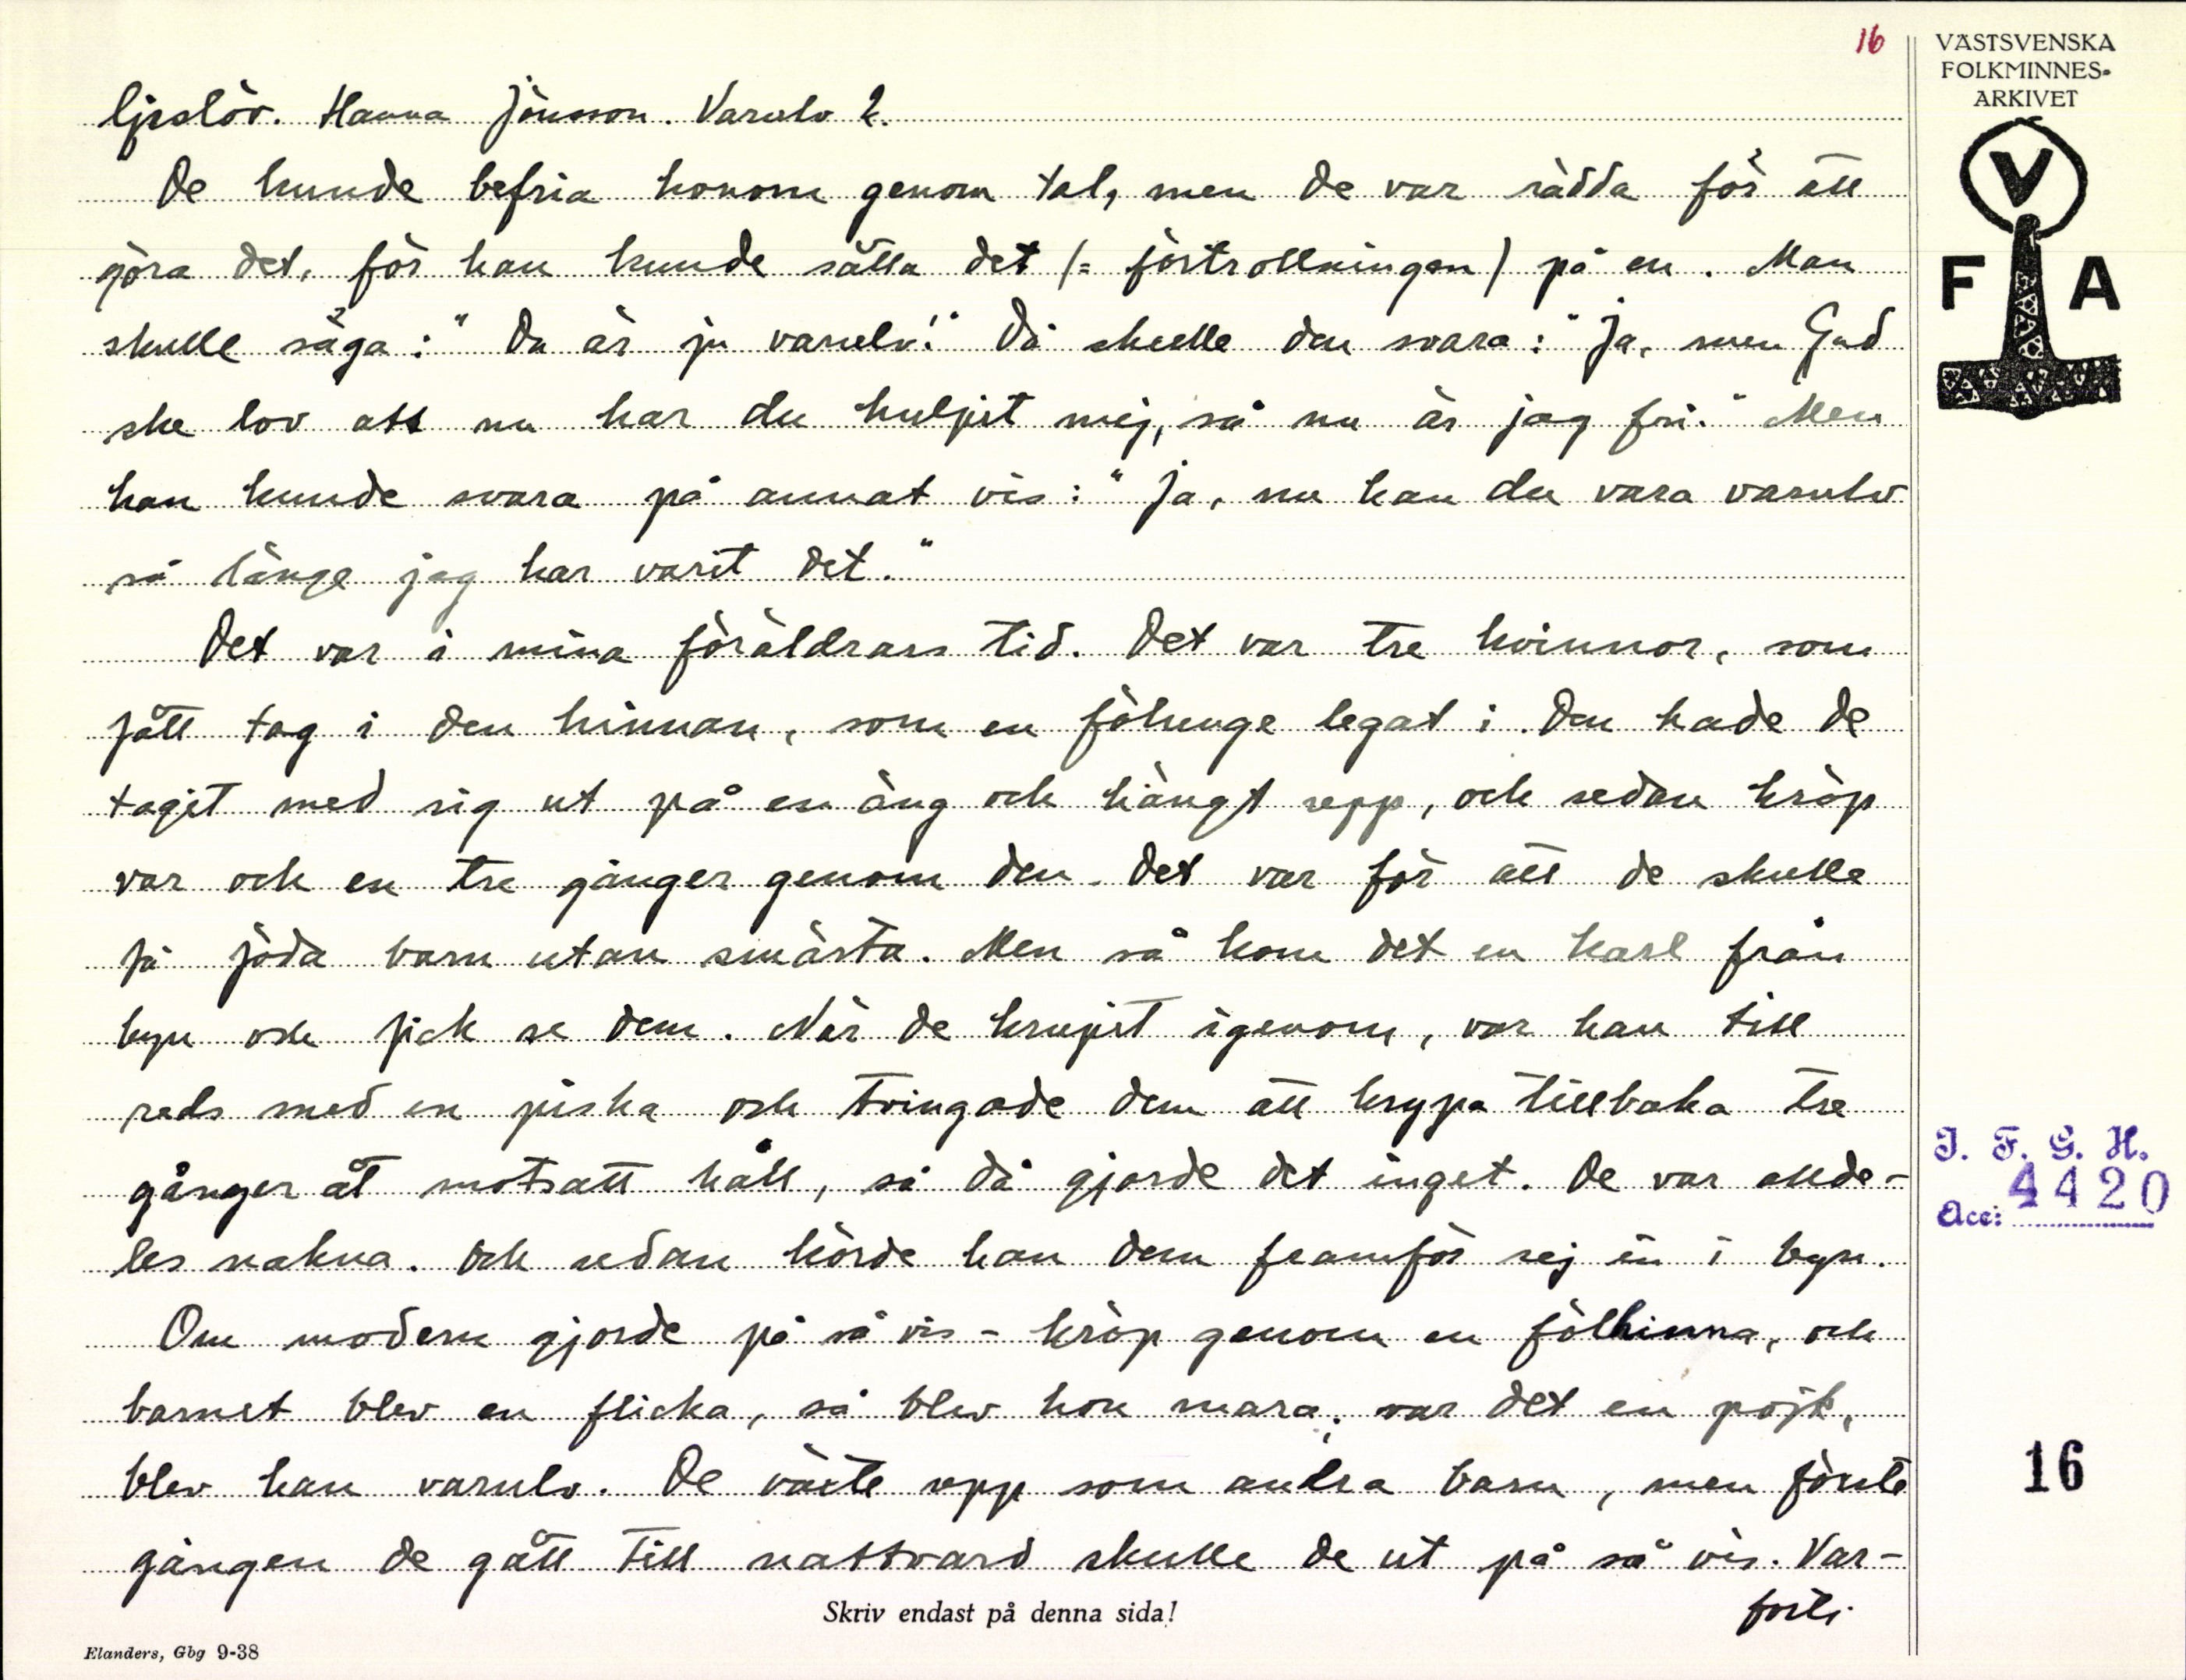 16
VÄSTSVENSKA
FOLKMINNES-
ARKIVET
V
F A
Ljeslöv. Hanna Jönsson. Varulv 2.
De kunde befria honom genom tal, men de var rädda för att
göra det, för han kunde sätta det (= förtrollningen) på en. Man
skulle säga: "Du är ju varulv!" Då skulle den svara: "Ja, men Gud
ske lov att nu har du hulpit mej, så nu är jag fri." Men
han kunde svara på annat vis: "Ja, nu kan du vara varulv
så länge jag har varit det."
Det var i mina föräldrars tid. Det var tre kvinnor, som
fått tag i den hinnan, som en fölunge legat i. Den hade de
taget med sig ut på en äng och hängt upp, och sedan kröp
var och en tre gånger genom den. Det var för att de skulle
få föda barn utan smärta. Men så kom det en karl från
byn och fick se dem. När de krupit igenom, var han till
reds med en piska och tvingade dem att krypa tillbaka tre
gånger åt motsatt håll, så då gjorde det inget. De var allde-
les nakna. Och sedan körde han dem framför sej in i byn.
Om modern gjorde på så vis - kröp genom en fölhinna, och
barnet blev en flicka, så blev hon mara; var det en pojk,
blev han varulv. De växte opp som andra barn, men förste
gången de gått till nattvard skulle de ut på så vis. Var-
forts.
J. F. G. H.
Acc: 4420
16
Skriv endast på denna sida!
Elanders, Gbg 9-38